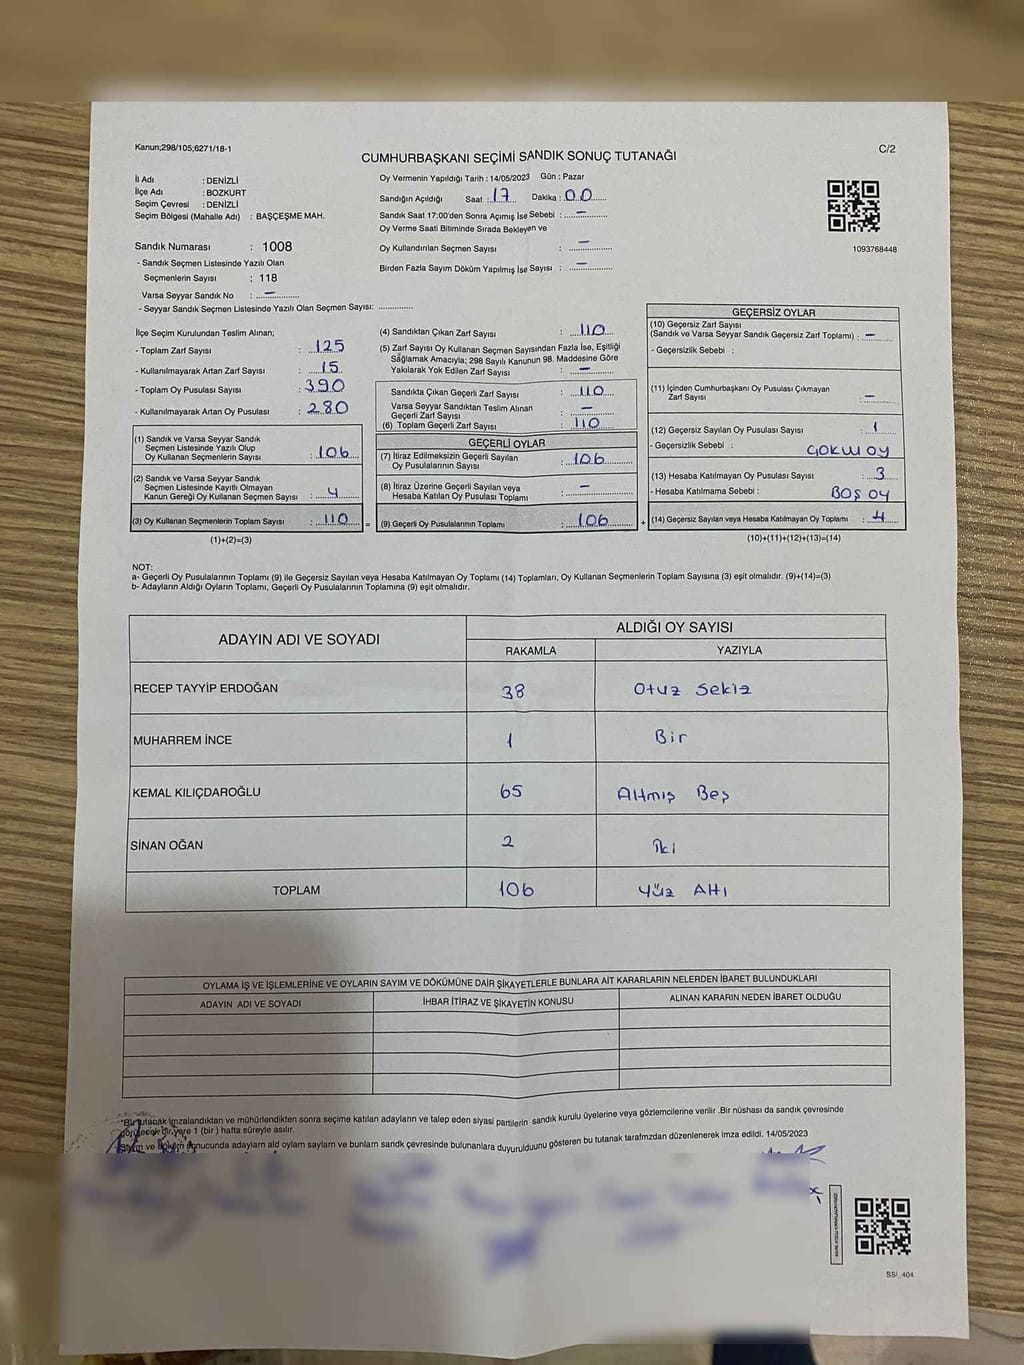 Kanun;298/105;6271/18-1
C/2
CUMHURBAŞKANI SEÇİMİ SANDIK SONUÇ TUTANAĞI
İl Adı : DENİZLİ
İlçe Adı : BOZKURT
Seçim Çevresi : DENİZLİ
Seçim Bölgesi (Mahalle Adı) : BAŞÇEŞME MAH.
Oy Vermenin Yapıldığı Tarih : 14/05/2023 Gün : Pazar
Sandığın Açıldığı Saat : 17 Dakika : 00
Sandık Saat 17:00'den Sonra Açımış İse Sebebi : –
Oy Verme Saati Bitiminde Sırada Bekleyen ve
Oy Kullandırılan Seçmen Sayısı : –
Birden Fazla Sayım Döküm Yapılmış İse Sayısı : –
1093768448
Sandık Numarası : 1008
- Sandık Seçmen Listesinde Yazılı Olan
Seçmenlerin Sayısı : 118
Varsa Seyyar Sandık No : –
- Seyyar Sandık Seçmen Listesinde Yazılı Olan Seçmen Sayısı:
İlçe Seçim Kurulundan Teslim Alınan;
- Toplam Zarf Sayısı : 125
- Kullanılmayarak Artan Zarf Sayısı : 15
- Toplam Oy Pusulası Sayısı : 390
- Kullanılmayarak Artan Oy Pusulası : 280
(1) Sandık ve Varsa Seyyar Sandık
Seçmen Listesinde Yazılı Olup
Oy Kullanan Seçmenlerin Sayısı : 106
(2) Sandık ve Varsa Seyyar Sandık
Seçmen Listesinde Kayıtlı Olmayan
Kanun Gereği Oy Kullanan Seçmen Sayısı : 4
(3) Oy Kullanan Seçmenlerin Toplam Sayısı : 110 =
(1)+(2)=(3)
(4) Sandıktan Çıkan Zarf Sayısı : 110
(5) Zarf Sayısı Oy Kullanan Seçmen Sayısından Fazla İse, Eşitliği
Sağlamak Amacıyla; 298 Sayılı Kanunun 98. Maddesine Göre
Yakılarak Yok Edilen Zarf Sayısı : –
Sandıkta Çıkan Geçerli Zarf Sayısı : 110
Varsa Seyyar Sandıktan Teslim Alınan
Geçerli Zarf Sayısı : –
(6) Toplam Geçerli Zarf Sayısı : 110
GEÇERLİ OYLAR
(7) İtiraz Edilmeksizin Geçerli Sayılan
Oy Pusulalarının Sayısı : 106
(8) İtiraz Üzerine Geçerli Sayılan veya
Hesaba Katılan Oy Pusulası Toplamı : –
(9) Geçerli Oy Pusulalarının Toplamı : 106 +
GEÇERSİZ OYLAR
(10) Geçersiz Zarf Sayısı
(Sandık ve Varsa Seyyar Sandık Geçersiz Zarf Toplamı) : –
- Geçersizlik Sebebi :
(11) İçinden Cumhurbaşkanı Oy Pusulası Çıkmayan
Zarf Sayısı : –
(12) Geçersiz Sayılan Oy Pusulası Sayısı : 1
- Geçersizlik Sebebi : ÇOKLU OY
(13) Hesaba Katılmayan Oy Pusulası Sayısı : 3
- Hesaba Katılmama Sebebi : BOŞ OY
(14) Geçersiz Sayılan veya Hesaba Katılmayan Oy Toplamı : 4
(10)+(11)+(12)+(13)=(14)
NOT:
a- Geçerli Oy Pusulalarının Toplamı (9) ile Geçersiz Sayılan veya Hesaba Katılmayan Oy Toplamı (14) Toplamları, Oy Kullanan Seçmenlerin Toplam Sayısına (3) eşit olmalıdır. (9)+(14)=(3)
b- Adayların Aldığı Oyların Toplamı, Geçerli Oy Pusulalarının Toplamına (9) eşit olmalıdır.
ADAYIN ADI VE SOYADI
ALDIĞI OY SAYISI
RAKAMLA YAZIYLA
RECEP TAYYİP ERDOĞAN 38 Otuz Sekiz
MUHARREM İNCE 1 Bir
KEMAL KILIÇDAROĞLU 65 Altmış Beş
SİNAN OĞAN 2 İki
TOPLAM 106 Yüz Altı
OYLAMA İŞ VE İŞLEMLERİNE VE OYLARIN SAYIM VE DÖKÜMÜNE DAİR ŞİKAYETLERLE BUNLARA AİT KARARLARIN NELERDEN İBARET BULUNDUKLARI
ADAYIN ADI VE SOYADI İHBAR İTİRAZ VE ŞİKAYETİN KONUSU ALINAN KARARIN NEDEN İBARET OLDUĞU
*Bu tutanak imzalandıktan ve mühürlendikten sonra seçime katılan adayların ve talep eden siyasi partilerin sandık kurulu üyelerine veya gözlemcilerine verilir .Bir nüshası da sandık çevresinde
görülecek bir yere 1 (bir ) hafta süreyle asılır.
Sayım ve döküm sonucunda adayların ald oyların sayların ve bunların sandk çevresinde bulunanlara duyurulduunu gösteren bu tutanak tarafmzdan düzenlenerek imza edildi. 14/05/2023
SSI_404